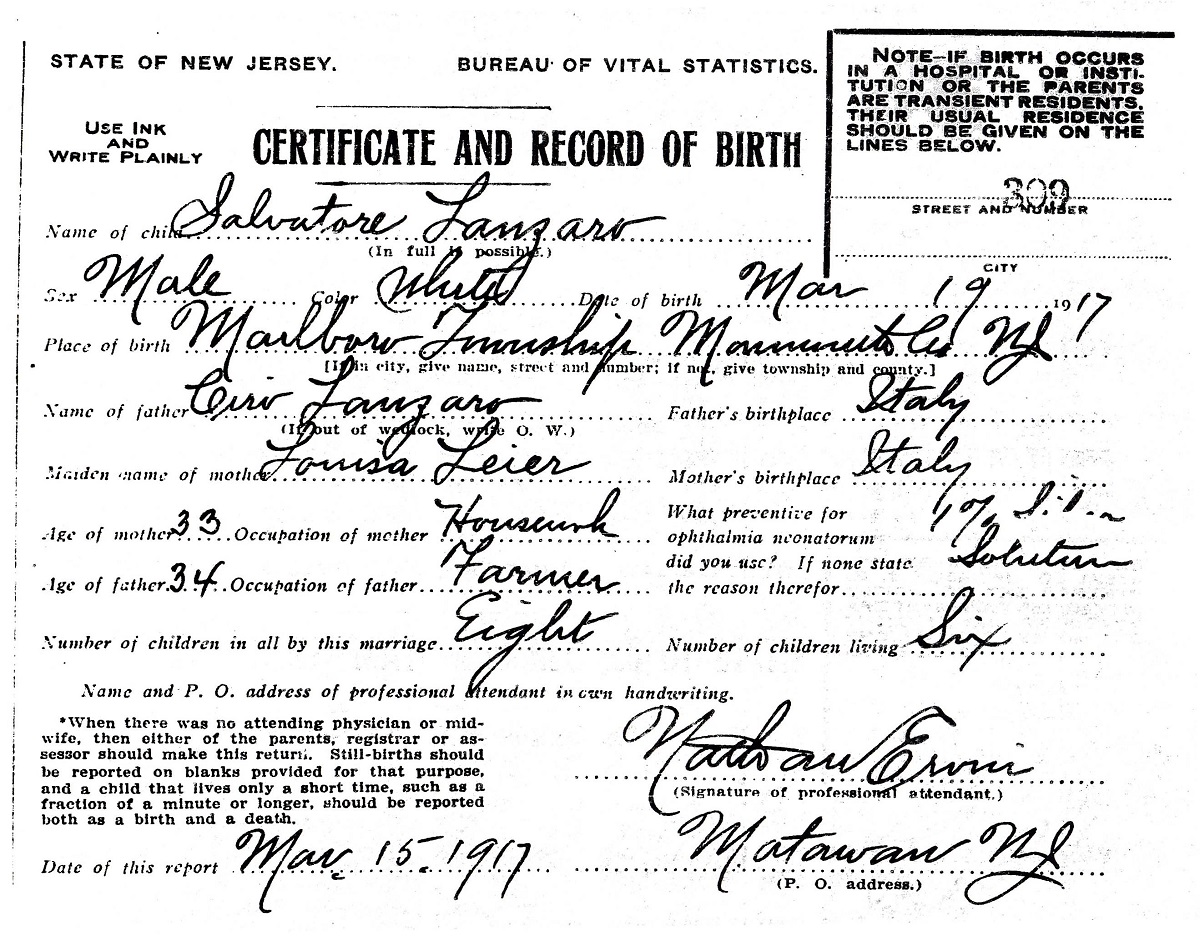 STATE OF NEW JERSEY. BUREAU OF VITAL STATISTICS.
NOTE—IF BIRTH OCCURS
IN A HOSPITAL OR INSTI-
TUTION OR THE PARENTS
ARE TRANSIENT RESIDENTS,
THEIR USUAL RESIDENCE
SHOULD BE GIVEN ON THE
LINES BELOW.
USE INK
AND
WRITE PLAINLY
CERTIFICATE AND RECORD OF BIRTH
399
STREET AND NUMBER
CITY
Name of child Salvatore Lanzaro
(In full if possible.)
Sex Male Color White Date of birth Mar 19 1917
Place of birth Marlboro Township Monmouth Co NJ
[If in city, give name, street and number; if not, give township and county.]
Name of father Ciro Lanzaro Father's birthplace Italy
(If out of wedlock, write O. W.)
Maiden name of mother Louisa Leier Mother's birthplace Italy
Age of mother 33 Occupation of mother Housework
What preventive for
ophthalmia neonatorum 1%
did you use? If none state
the reason therefor Solution
Age of father 34 Occupation of father Farmer
Number of children in all by this marriage Eight Number of children living Six
Name and P. O. address of professional attendant in own handwriting.
*When there was no attending physician or mid-
wife, then either of the parents, registrar or as-
sessor should make this return. Still-births should
be reported on blanks provided for that purpose,
and a child that lives only a short time, such as a
fraction of a minute or longer, should be reported
both as a birth and a death.
Nathan Ervin
(Signature of professional attendant.)
Date of this report Mar. 15. 1917 Matawan NJ
(P. O. address.)